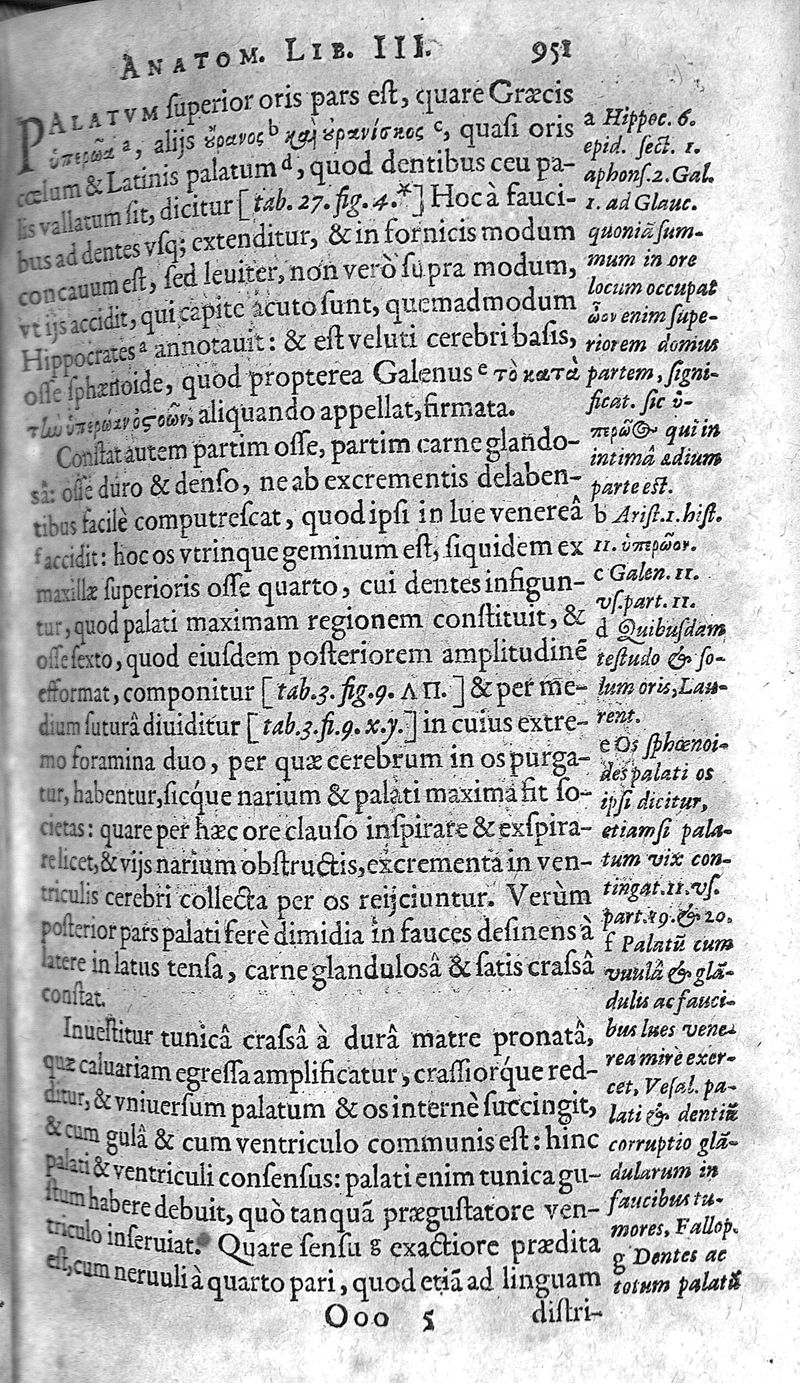 ANATOM. LIB. III. 951
PALATVM ſuperior oris pars eſt, quare Græcis
ὑπερῶα a, alijs ȣ̓ρανος b καὶ ȣ̓ρανίσκος c, quaſi oris
cœlum & Latinis palatum d, quod dentibus ceu pa-
lis vallatum ſit, dicitur [tab. 27. fig. 4.*] Hoc à fauci-
bus ad dentes vſq; extenditur, & in fornicis modum
concauum eſt, ſed leuiter, non verò ſupra modum,
vt ijs accidit, qui capite acuto ſunt, quemadmodum
Hippocrates a annotauit: & eſt veluti cerebri baſis,
oſſe ſphænoide, quod propterea Galenus e τὸ κατὰ
τὼ ὑπερώαν ὀςοῦν, aliquando appellat, firmata.
Conſtat autem partim oſſe, partim carne glando-
sâ: oſſe duro & denſo, ne ab excrementis delaben-
tibus facilè computreſcat, quod ipſi in lue venereâ
f accidit: hoc os vtrinque geminum eſt, ſiquidem ex
maxillæ ſuperioris oſſe quarto, cui dentes infigun-
tur, quod palati maximam regionem conſtituit, &
oſſe ſexto, quod eiuſdem poſteriorem amplitudinē
efformat, componitur [tab.3. fig.9. Λ Π. ] & per me-
dium ſuturâ diuiditur [tab.3.fi.9. x.y.] in cuius extre-
mo foramina duo, per quæ cerebrum in os purga-
tur, habentur, ſicq́ue narium & palati maxima fit ſo-
cietas: quare per hæc ore clauſo inſpirare & exſpira-
re licet, & vijs narium obſtructis, excrementa in ven-
triculis cerebri collecta per os reijciuntur. Verùm
poſterior pars palati ferè dimidia in fauces deſinens à
latere in latus tenſa, carne glanduloſâ & ſatis craſſâ
conſtat.
Inueſtitur tunicâ craſſâ à durâ matre pronatâ,
quæ caluariam egreſſa amplificatur, craſſiorq́ue red-
ditur, & vniuerſum palatum & os internè ſuccingit,
& cum gulâ & cum ventriculo communis eſt: hinc
palati & ventriculi conſenſus: palati enim tunica gu-
ſtum habere debuit, quò tanquā præguſtatore ven-
triculo inſeruiat. Quare ſenſu g exactiore prædita
eſt, cum neruuli à quarto pari, quod etiā ad linguam
Ooo 5 diſtri-
a Hippoc. 6.
epid. ſect. 1.
aphonſ.2. Gal.
1. ad Glauc.
quoniā ſum-
mum in ore
locum occupat
ὧον enim ſupe-
riorem domus
partem, ſigni-
ficat. ſic ὑ-
περῶ& qui in
intimâ ædium
parte eſt.
b Ariſt.1. hiſt.
11. ὑπερῶον.
c Galen. 11.
vſ. part. 11.
d Quibuſdam
teſtudo & ſo-
lum oris, Lau-
rent.
e Os ſphœnoi-
des palati os
ipſi dicitur,
etiamſi pala-
tum vix con-
tingat. 11. vſ.
part. 19. & 20.
f Palatū cum
vuulâ & glā-
dulis ac fauci-
bus lues vene-
rea mirè exer-
cet, Veſal. pa-
lati & dentiū
corruptio glā-
dularum in
faucibus tu-
mores, Fallop.
g Dentes ac
totum palatū